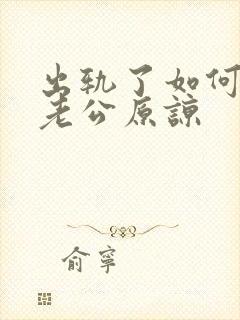 出轨了如何
老公原谅
俞寧